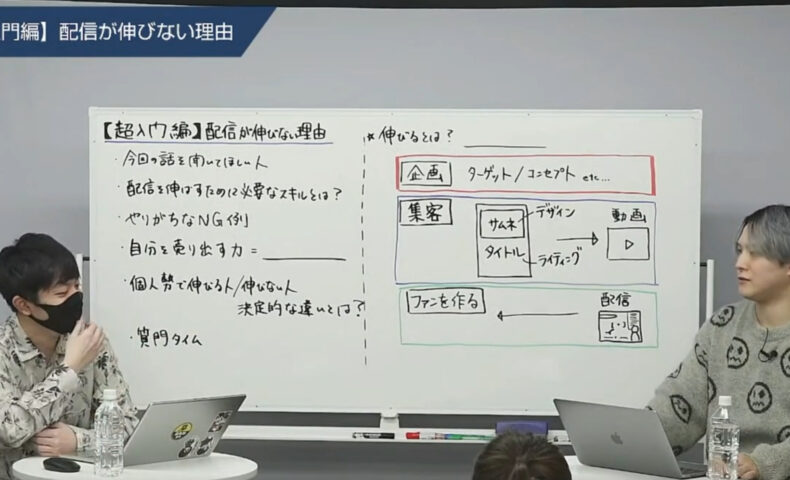 門編】配信が伸びない理由
【超入門編】配信が伸びない理由
・今回の話を聞いてほしい人
・配信を伸ばすために必要なスキルとは？
・やりがちなNG例
・自分を売り出す力 =
・個人勢で伸びる人/伸びない人
決定的な違いとは？
・質問タイム
* 伸びるとは？
企画 ターゲット/コンセプト etc...
集客
サムネ
デザイン
タイトル
ライティング
動画
ファンを作る
配信